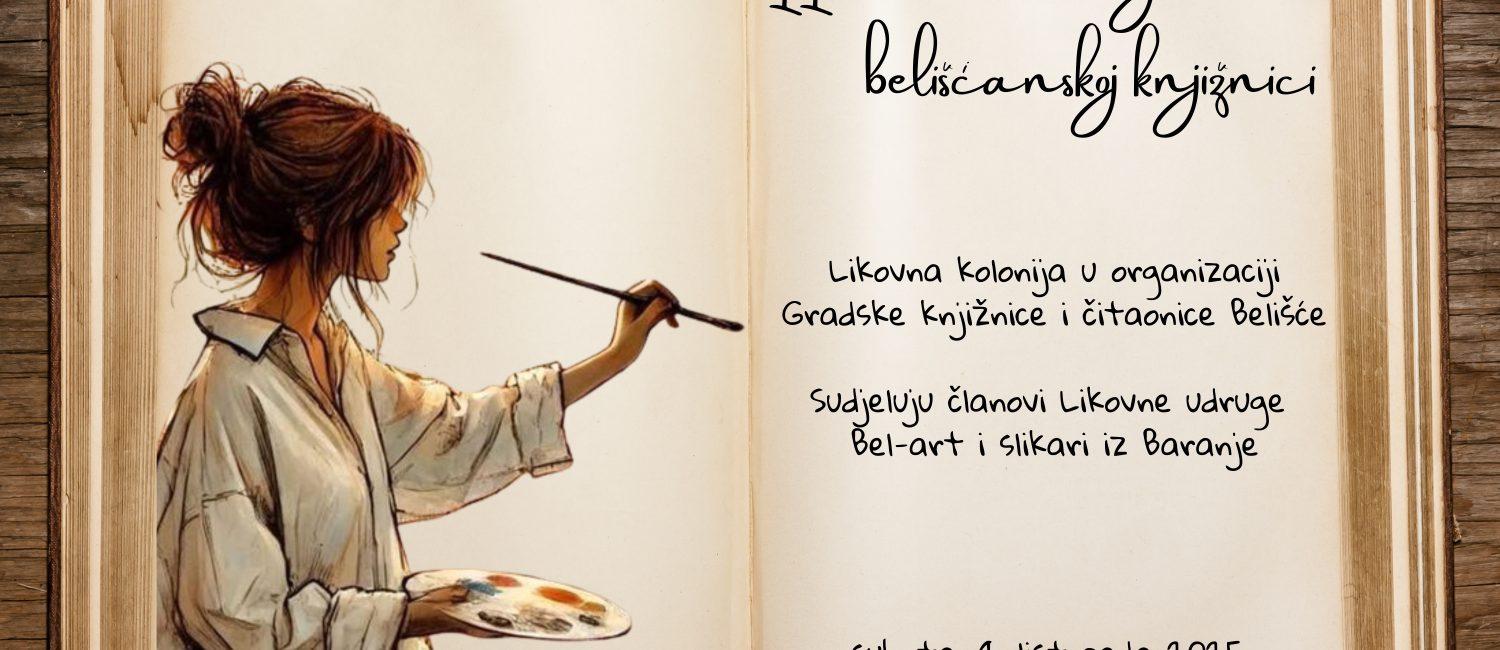 belišćanskoj knjižnici
Likovna kolonija u organizaciji
Gradske knjižnice i čitaonice Belišće
Sudjeluju članovi Likovne udruge
Bel-art i slikari iz Baranje